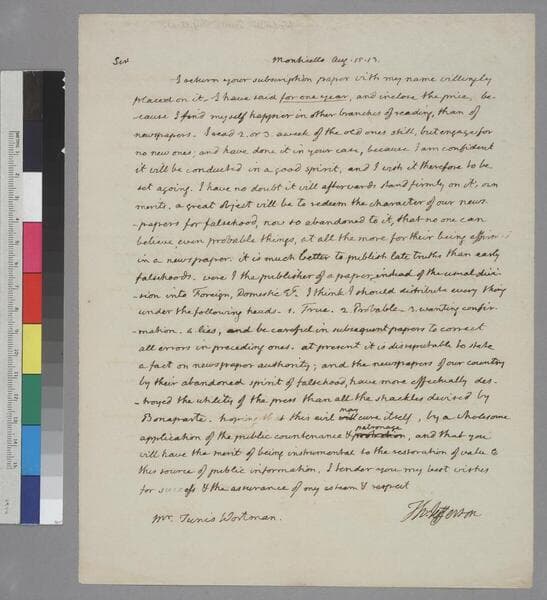 Sir Monticello Aug. 15. 13.
I return your subscription paper with my name willingly
placed on it. I have said for one year, and inclose the price, be-
cause I find myself happier in other branches of reading, than of
newspapers. I read 2. or 3. a week of the old ones still, but engage for
no new ones; and have done it in your case, because I am confident
it will be conducted in a good spirit, and I wish it therefore to be
set agoing. I have no doubt it will afterwards stand firmly on it's own
merits. a great object will be to redeem the character of our news-
-papers for falsehood, now so abandoned to it, that no one can
believe even probable things, at all the more for their being affirm
in a newspaper. it is much better to publish late truths than early
falsehoods. were I the publisher of a paper, instead of the usual divi-
-sion into Foreign, Domestic &c. I think I should distribute every thing
under the following heads. 1. True. 2. Probable. 3. wanting confir-
-mation. 4. lies, and be careful in subsequent papers to correct
all errors in preceding ones. at present it is disreputable to state
a fact on newspaper authority; and the newspapers of our country
by their abandoned spirit of falsehood, have more effectually des-
-troyed the utility of the press than all the shackles devised by
Bonaparte. hoping that this evil will may cure itself, by a wholesome
application of the public countenance & patronage, and that you
will have the merit of being instrumental to the restoration of value to
this source of public information, I tender you my best wishes
for success & the assurance of my esteem & respect
Th: Jefferson
Mr. Tunis Wortman.